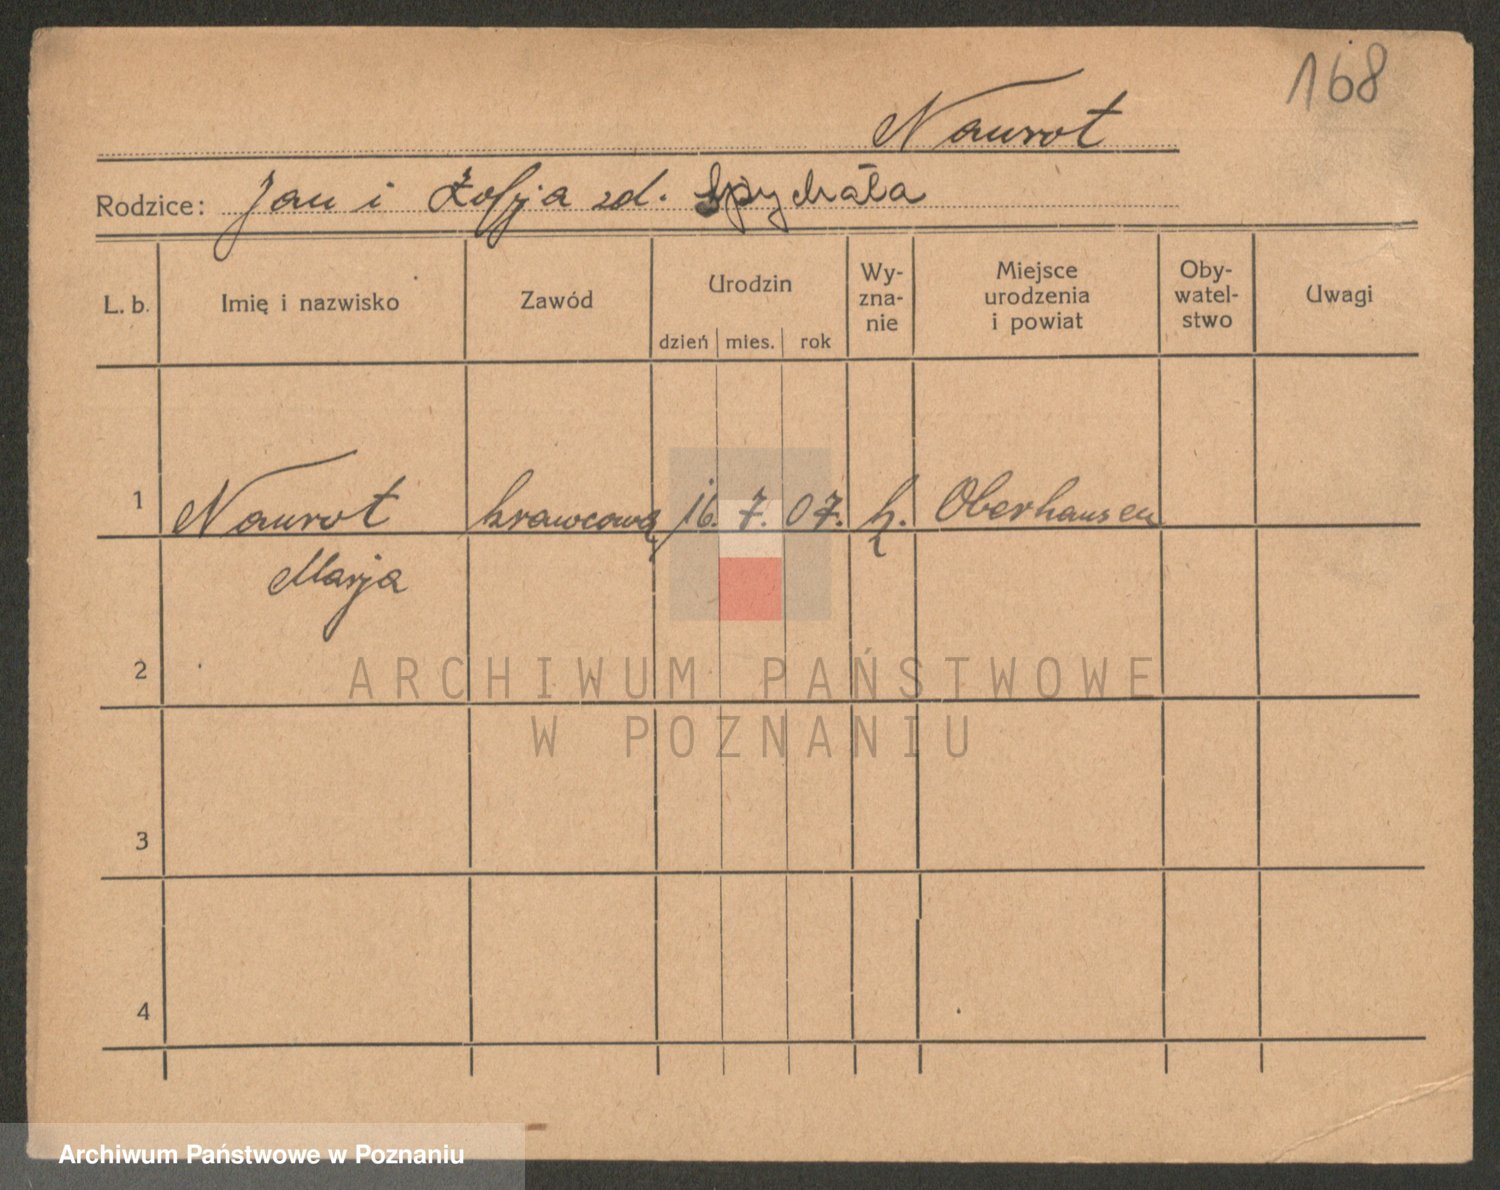 168
Nawrot
Rodzice: Jan i Zofja zd. Spychała
L. b. Imię i nazwisko Zawód Urodzin dzień mies. rok Wy-zna-nie Miejsce urodzenia i powiat Oby-watel-stwo Uwagi
1 Nawrot krawcowa 16. 7. 07. k. Oberhausen
Marja
2
ARCHIWUM PAŃSTWOWE
W POZNANIU
3
4
Archiwum Państwowe w Poznaniu